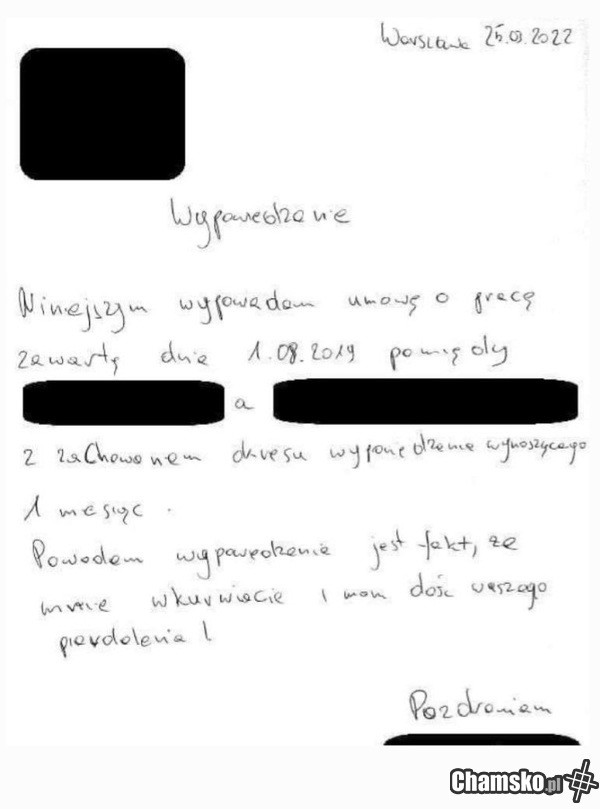 Warszawa 25.03.2022
Wypowiedzenie
Niniejszym wypowiadam umowę o pracę
zawartą dnia 1.08.2019 pomiędzy
a
z zachowaniem okresu wypowiedzenia wynoszącego
1 miesiąc.
Powodem wypowiedzenia jest fakt, że
mnie wkurwiacie i mam dość waszego
pierdolenia!
Pozdrawiam
Chamsko.pl